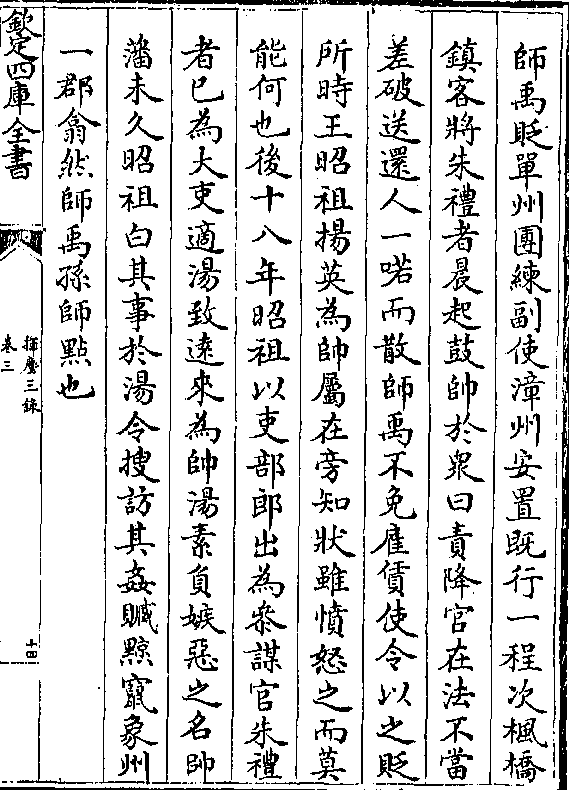 師禹貶單州團練副使漳州安置既行一程次楓橋
鎮客將朱禮者晨起鼓帥於衆曰責降官在法不當
差破送還人一喏而散師禹不免雇賃使令以之貶
所時王昭祖揚英為帥屬在旁知狀雖憤怒之而莫
能何也後十八年昭祖以吏部郎出為叅謀官朱禮
者已為大吏適湯致遠來為帥湯素負嫉惡之名帥
藩未久昭祖白其事於湯令搜訪其姦贓黥竄象州
一郡翕然師禹孫師點也
欽定四庫全書
揮麈三錄
卷三
十四